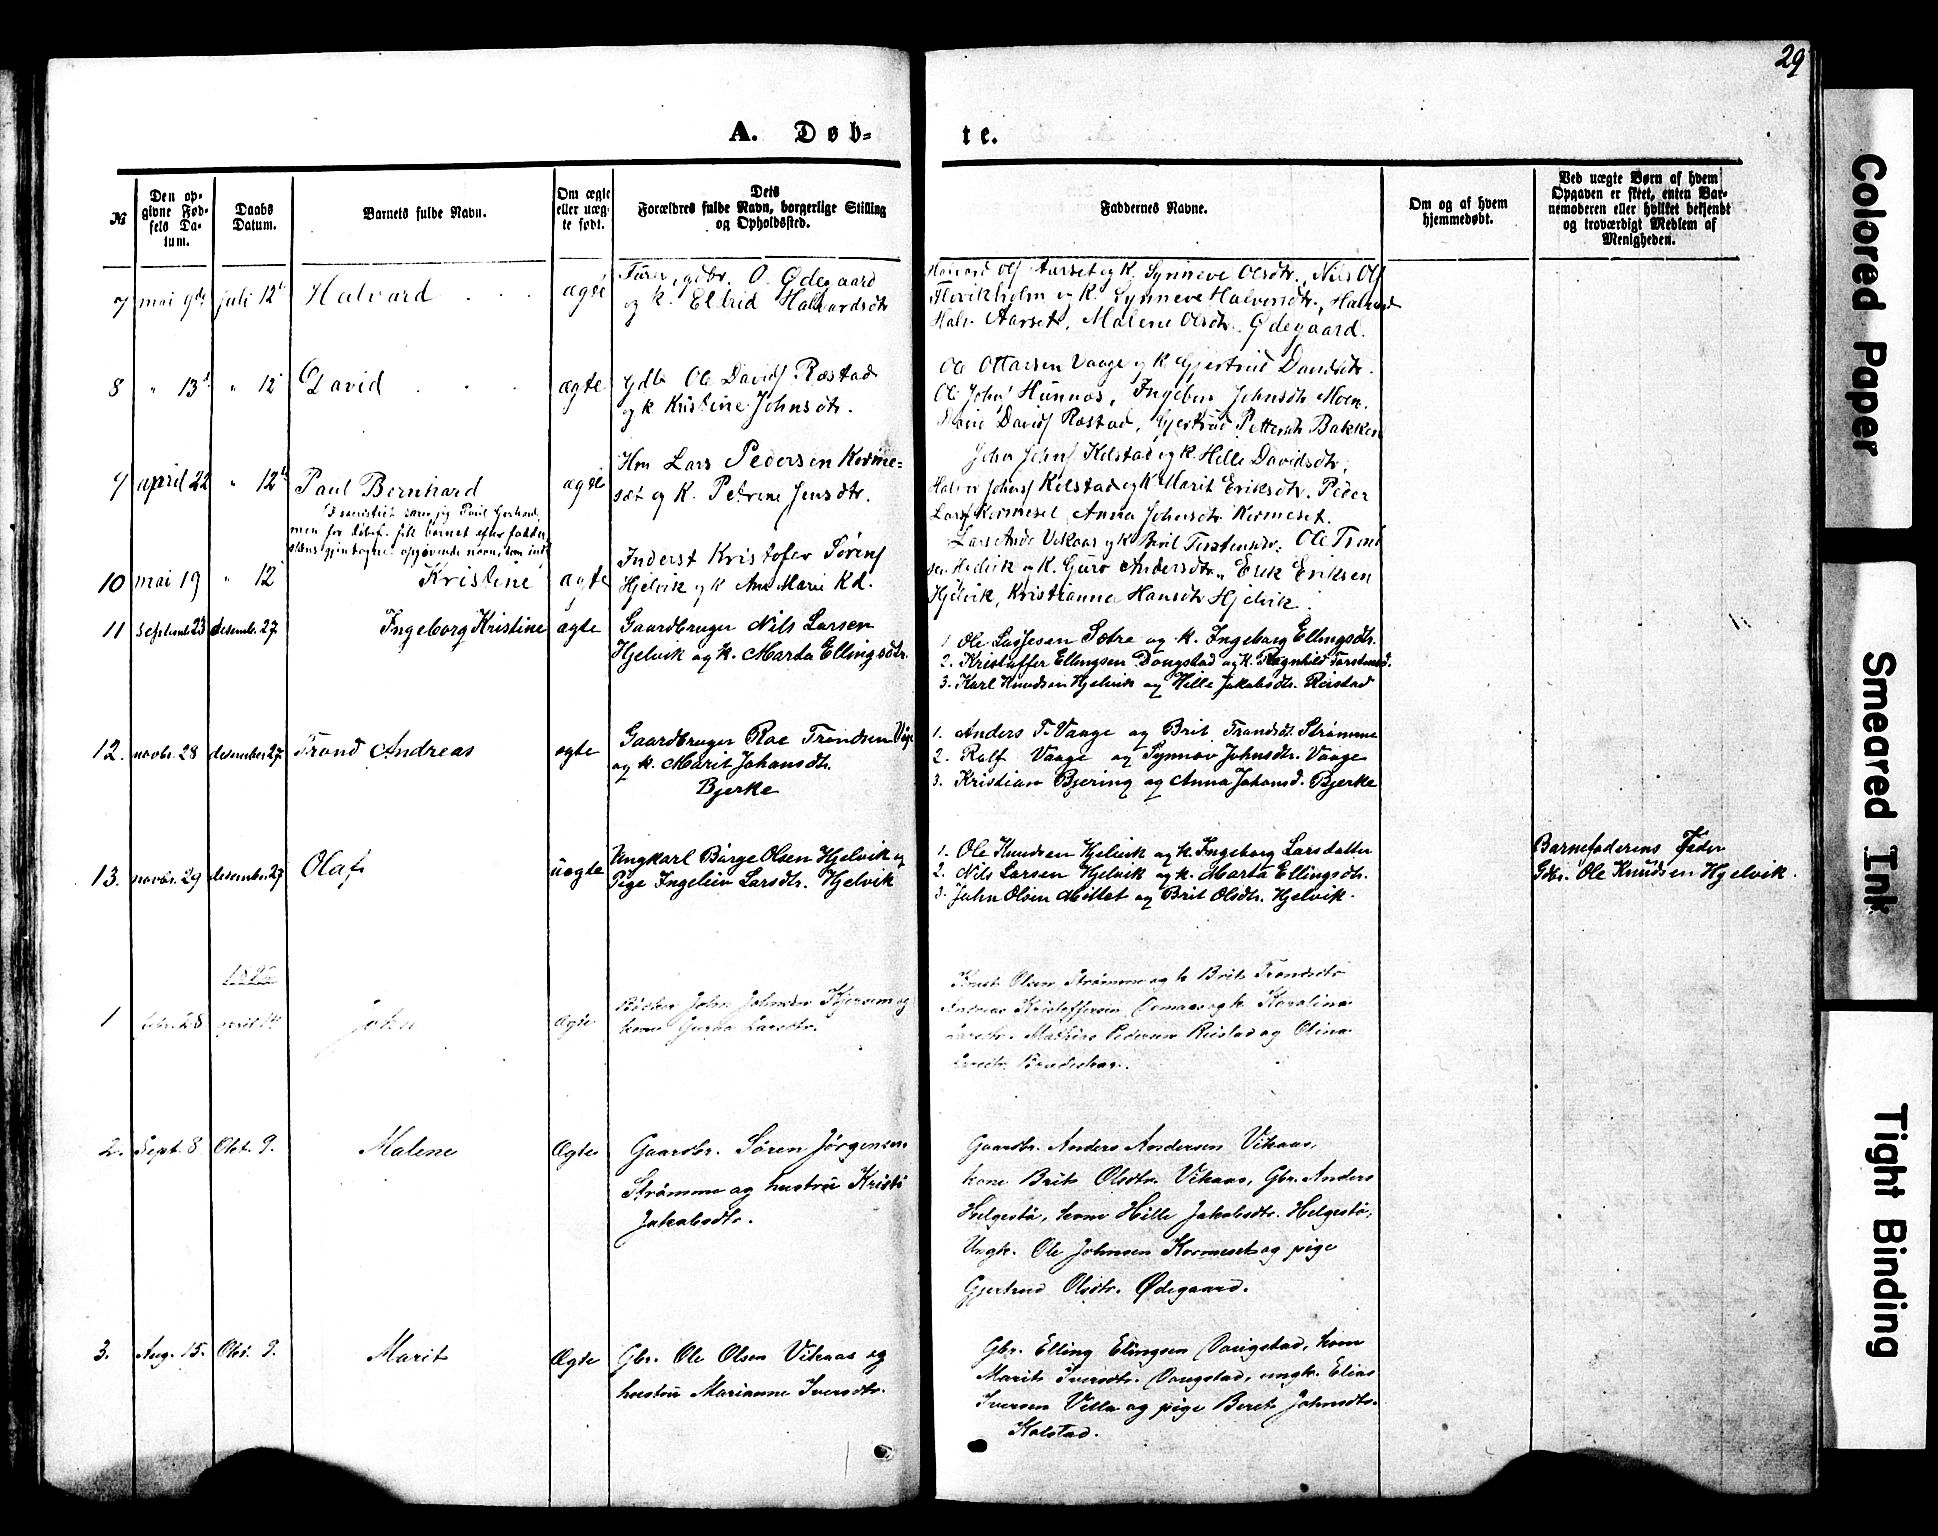 29
A. Døb-
te.
№
Den op-
givne Fød-
sels Da-
tum.
Daabs
Datum.
Barnets fulde Navn.
Om ægte
eller uæg-
te født.
Dets
Forældres fulde Navn, borgerlige Stilling
og Opholdssted.
Faddernes Navne.
Om og af hvem
hjemmedøbt.
Ved uægte Børn af hvem
Opgaven er skeet, enten Bar-
nemoderen eller hvilket bekjendt
og troværdigt Medlem af
Menigheden.
7 mai 9de juli 12te Halvard ægte
gdbr. O. Ødegaard
og k. Eldrid Halvardsdtr
Halvard Ols Aarset og k. Synneve Olsdtr., Nils Ols
k. Synneve Halvorsdtr., Halvard
Halv. Aarset, Malene Olsdtr. Ødegaard.
8 " 13de " 12te David ægte
gdbr Ole Davids Ræstad
og k Kristine Johnsdtr.
Ole Ottarsen Vaage og k Gjertrud Davidsdtr.
Ole Johns Hunnas, Ingebor Johnsdtr Moen.
Davids Ræstad, Gjertrud Pettersdtr Bakken
9 april 22 " 12te Paul Bernhard ægte
Hm Lars Pedersen Korme-
sæt og k. Petrine Jensdtr.
men før døbef. fik barnet efter fadder
John Johns Kolstad og k. Hille Davidsdtr,
Halvor Johns Kolstad og k Marit Eriksdtr. Peder
Lars Kormeset, Anna Johnsdtr Kormeset.
10 mai 19 " 12 Kristine ægte
Inderst Kristofer Sørens
Hjelvik og k Ane Marie Kd.
Lars Ands Vikaas og k Brit Torstensdtr. Ole Trond
sen Hjelvik og k. Guro Andersdtr., Erik Eriksen
Hjelvik, Kristianna Hansdtr Hjelvik.
11 septemb. 23 desemb. 27 Ingeborg Kristine ægte
Gaardbruger Nils Larsen
Hjelvik og k. Marta Ellingsdtr.
1. Ole Lassesen Sætre og k. Ingeborg Ellingsdtr.
2. Kristoffer Ellingsen Dougstad og k. Ragnhild Torstensd.
3. Karl Knudsen Hjelvik og Hille Jakobsdtr. Reistad
12. novbr. 28 desember 27 Trond Andreas ægte
Gaardbruger Roe Trondsen Våge
og k. Marit Johansdtr.
Bjerke
1. Anders T. Vaage og Brit Trondsdt. Strømme
2. Rolf Vaage og Synnøv Johnsdtr. Vaage
3. Kristian Bjering og Anna Johansd. Bjerke
13. novbr. 29 desember 27 Olaf uægte
Ungkarl Børge Olsen Hjelvik og
Pige Ingeleiv Larsdtr. Hjelvik
1. Ole Knudsen Hjelvik og k. Ingeborg Larsdatter
2. Nils Larsen Hjelvik og k. Marta Ellingsdtr.
3. John Olsen Mittet og Brit Olsdtr. Hjelvik.
Barnefaderens Fader
Gbr. Ole Knudsen Hjelvik.
1 febr. 28 april 14 John Ægte
John Johnsen Kjersem og
kone Guroe Larsdtr.
Knut Olsen Strømme og k Brit Trondsdtr
Andreas Kristoffersen og k. Karolina
Larsdtr. Mathias Pedersen Reistad og Olina
Larsdtr.
2. Sept. 8 Okt. 9. Malene Ægte
Gaardbr. Søren Jørgensen
Strømme og hustru Kristi
Jakobsdtr.
Gaardbr. Anders Andersen Vikaas,
kone Brit Olsdtr. Vikaas, Gbr. Anders
Helgestø, kone Hille Jakobsdtr. Helgestø,
Ungk. Ole Johnsen Kormeset og pige
Gjertrud Olsdtr. Ødegaard.
3. Aug. 15. Okt. 9. Marit Ægte
Gbr. Ole Olsen Vikaas og
hustru Marianne Iversdtr.
Gbr. Elling Elingsen Dougstad, kone
Marit Iversdtr. Dougstad, ungk. Elias
Iversen Villa og pige Beret Johnsdtr.
Kolstad.
Colored Paper
Smeared Ink
Tight Binding